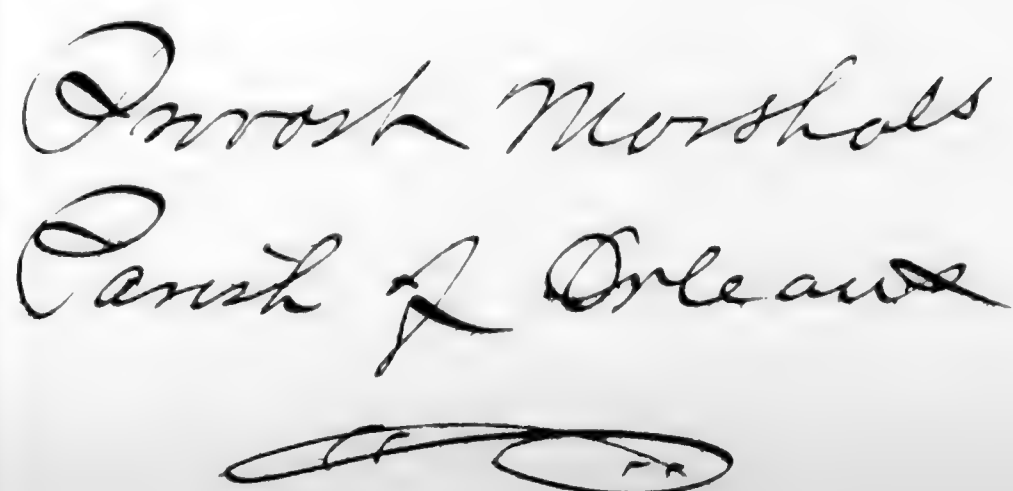 Provost Marshals
Parish of Orleans